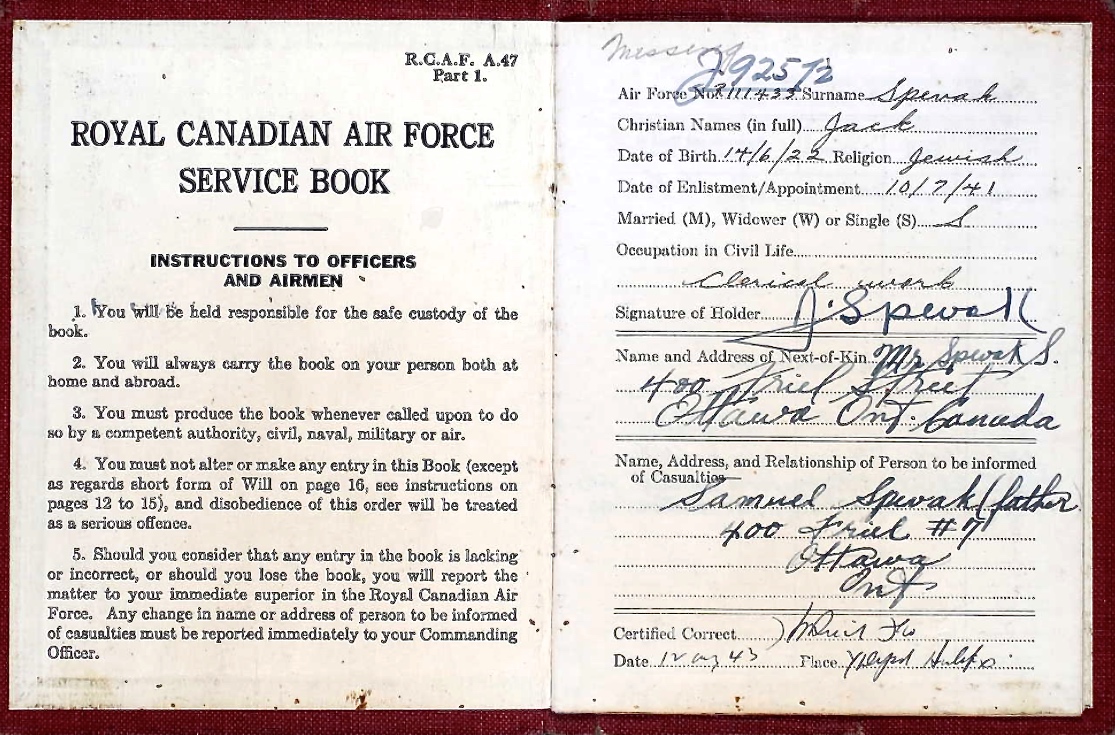 R.C.A.F. A.47
Part 1.
ROYAL CANADIAN AIR FORCE
SERVICE BOOK
INSTRUCTIONS TO OFFICERS
AND AIRMEN
1. You will be held responsible for the safe custody of the
book.
2. You will always carry the book on your person both at
home and abroad.
3. You must produce the book whenever called upon to do
so by a competent authority, civil, naval, military or air.
4. You must not alter or make any entry in this Book (except
as regards short form of Will on page 16, see instructions on
pages 12 to 15), and disobedience of this order will be treated
as a serious offence.
5. Should you consider that any entry in the book is lacking
or incorrect, or should you lose the book, you will report the
matter to your immediate superior in the Royal Canadian Air
Force. Any change in name or address of person to be informed
of casualties must be reported immediately to your Commanding
Officer.
J92572
Air Force No. Surname Spevak
Christian Names (in full) Jack
Date of Birth 14/6/22 Religion Jewish
Date of Enlistment/Appointment 10/7/41
Married (M), Widower (W) or Single (S) S
Occupation in Civil Life
Clerical work
Signature of Holder J. Spevak
Name and Address of Next-of-Kin Mr Spevak S.
400 Friel Street
Ottawa Ont. Canada
Name, Address, and Relationship of Person to be informed
of Casualties
Samuel Spevak (father
400 Friel #7
Ottawa
Ont
Certified Correct
Date 12 Aug 43 Place Halifax